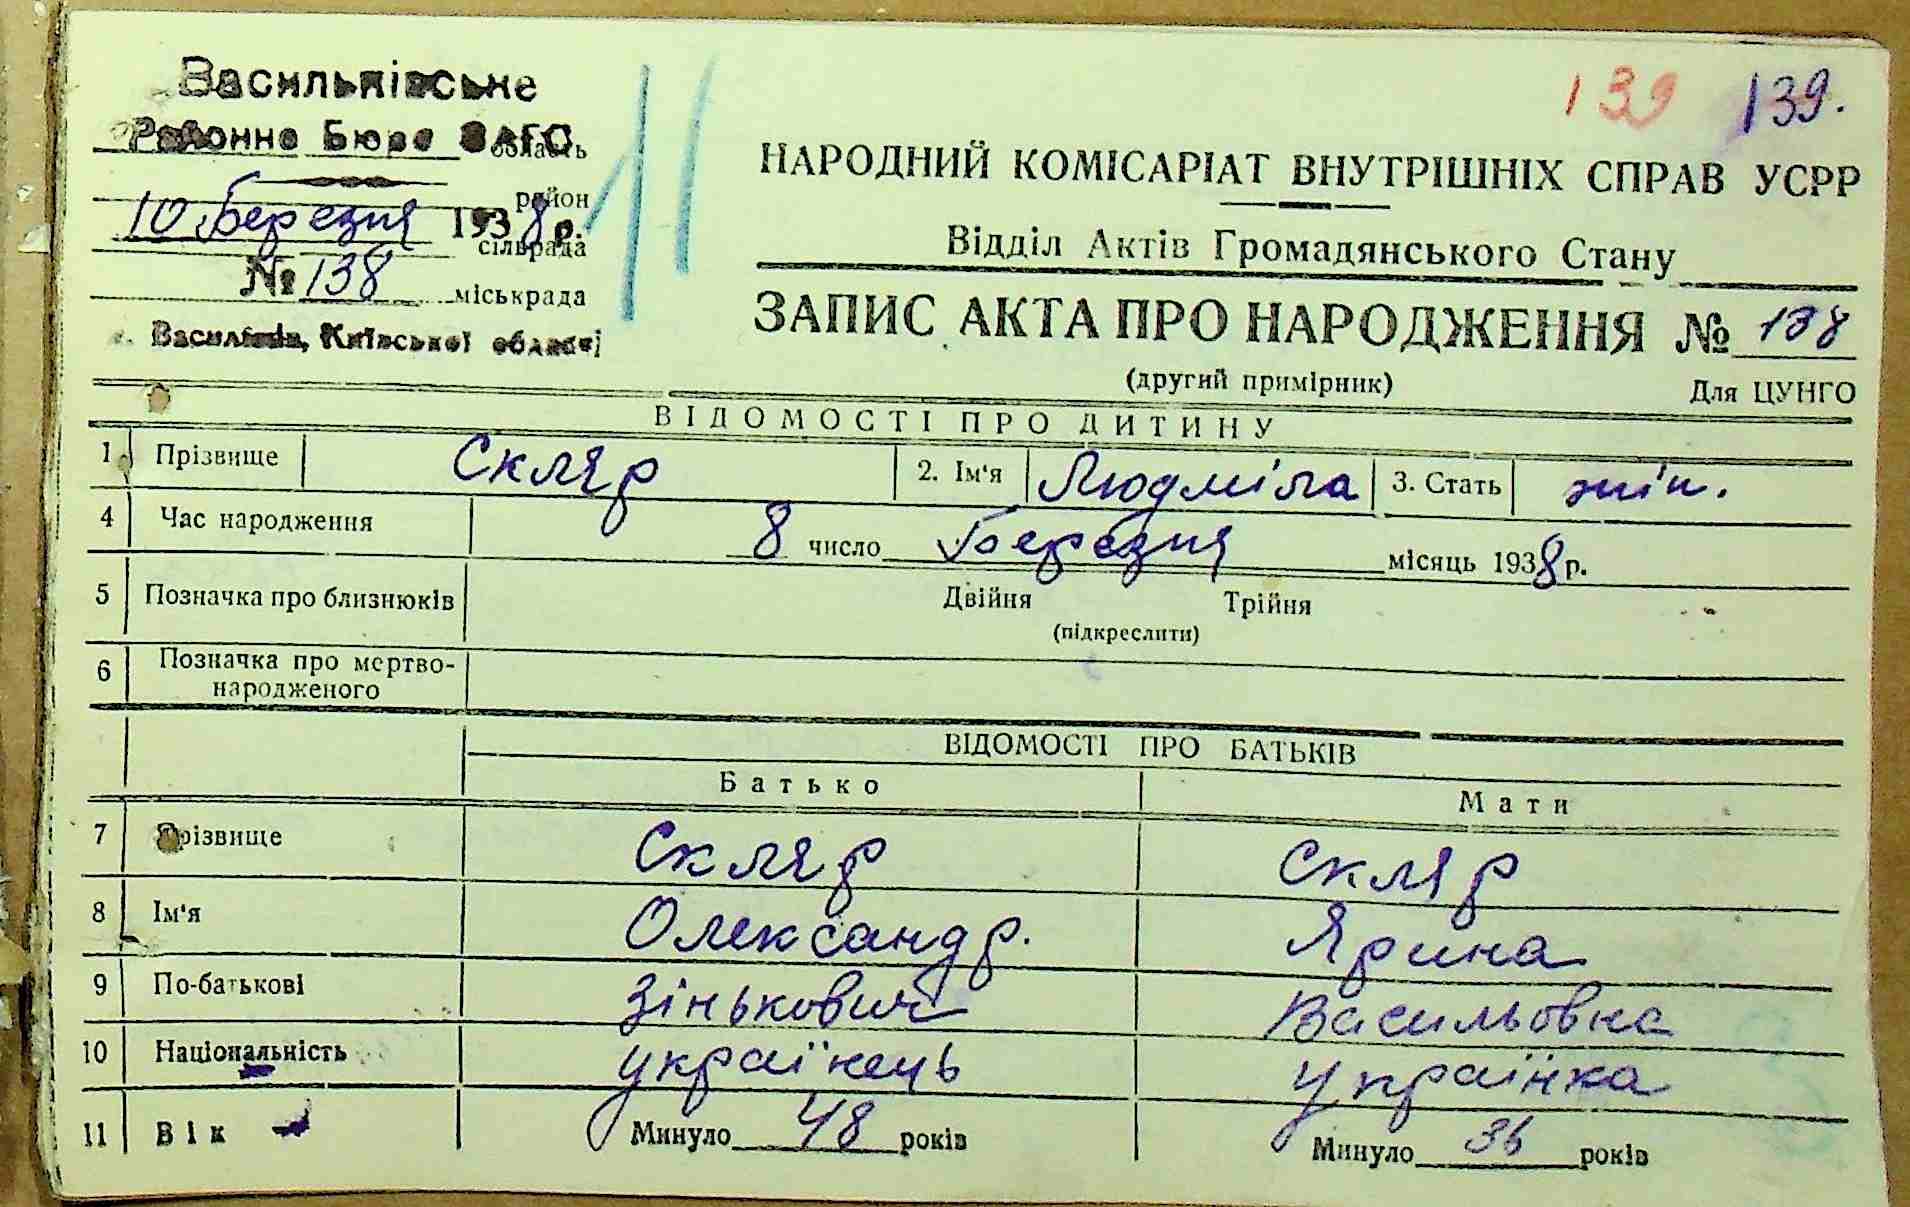 Васильківське
Районне Бюро ЗАГС
область
район
10 Березня 1938 р.
сільрада
№ 138
міськрада
Васильків, Київської області
139 139.
НАРОДНИЙ КОМІСАРІАТ ВНУТРІШНІХ СПРАВ УСРР
Відділ Актів Громадянського Стану
ЗАПИС АКТА ПРО НАРОДЖЕННЯ № 138
(другий примірник) Для ЦУНГО
ВІДОМОСТІ ПРО ДИТИНУ
1 Прізвище Скляр 2. Ім'я Людміла 3. Стать жін.
4 Час народження 8 число Березня місяць 1938 р.
5 Позначка про близнюків Двійня Трійня
(підкреслити)
6 Позначка про мертво-
народженого
ВІДОМОСТІ ПРО БАТЬКІВ
Батько Мати
7 Прізвище Скляр Скляр
8 Ім'я Олександр. Ярина
9 По-батькові Зінькович Васильовна
10 Національність українець українка
11 Вік Минуло 48 років Минуло 36 років